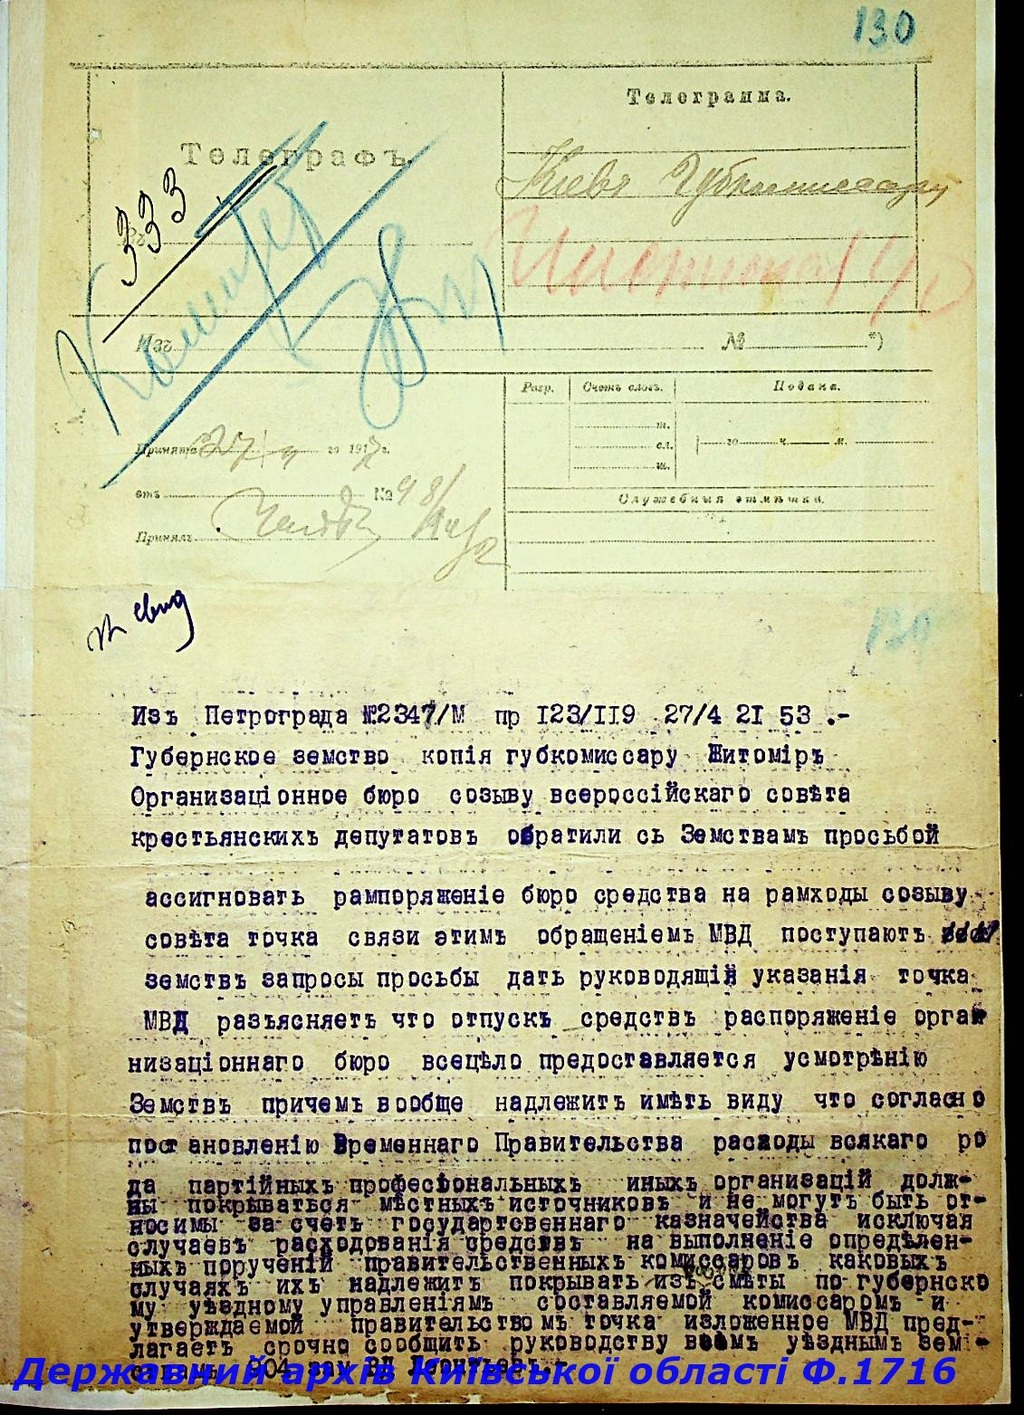 130
Телеграмма.
Телеграфъ
Кіевъ Губкомиссару
333
Изъ № *)
Разр. Счетъ словъ. Подана.
го ч. м.
Принята 27 го 1917 г.
отъ №
Служебныя отмѣтки.
Принялъ
130
Изъ Петрограда №2347/М пр I23/II9 27/4 2I 53 .-
Губернское земство копія губкомиссару Житоміръ
Организаціонное бюро созыву всероссійскаго совѣта
крестьянскихъ депутатовъ обратили сь Земствамъ просьбой
ассигновать рампоряженіе бюро средства на рамходы созыву
совѣта точка связи этимъ обращеніемъ МВД поступаютъ
земствъ запросы просьбы дать руководящій указанія точка
МВД разъясняетъ что отпускъ средствъ распоряженіе орган
низаціоннаго бюро всецѣло предоставляется усмотрѣнію
Земствъ причемъ вообще надлежитъ имѣть виду что согласно
постановленію Временнаго Правительства расходы всякаго ро
да партійныхъ професіональныхъ иныхъ организацій долж-
ны покрываться мѣстныхъ источниковъ и не могутъ быть от-
носимы за счетъ государтсвеннаго казначейства исключая
случаевъ расходованія средствъ на выполненіе опредѣлен-
ныхъ порученій правительственныхъ комиссаровъ каковыхъ
случаяхъ ихъ надлежитъ покрывать изъ смѣты по губернско
му уѣздному управленіямъ составляемой комиссаромъ и
утверждаемой правительствомъ точка изложенное МВД пред-
лагаетъ срочно сообщить руководству всѣмъ уѣзднымъ зем-
904 зам ВД Леонтьевъ.-
Державний архів Київської області Ф.1716